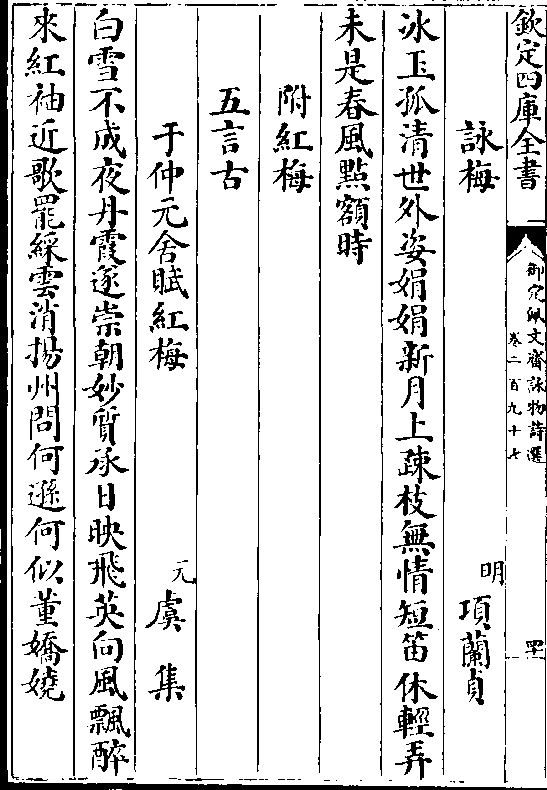 欽定四庫全書
御定佩文齋詠物詩選
卷二百九十七
詠梅
明項蘭貞
冰玉孤清世外姿娟娟新月上疎枝無情短笛休輕弄
未是春風點額時
附紅梅
五言古
于仲元舍賦紅梅
元虞集
白雪不成夜丹霞遂崇朝妙質承日映飛英向風飄醉
來紅袖近歌罷綵雲消揚州問何遜何似董嬌嬈